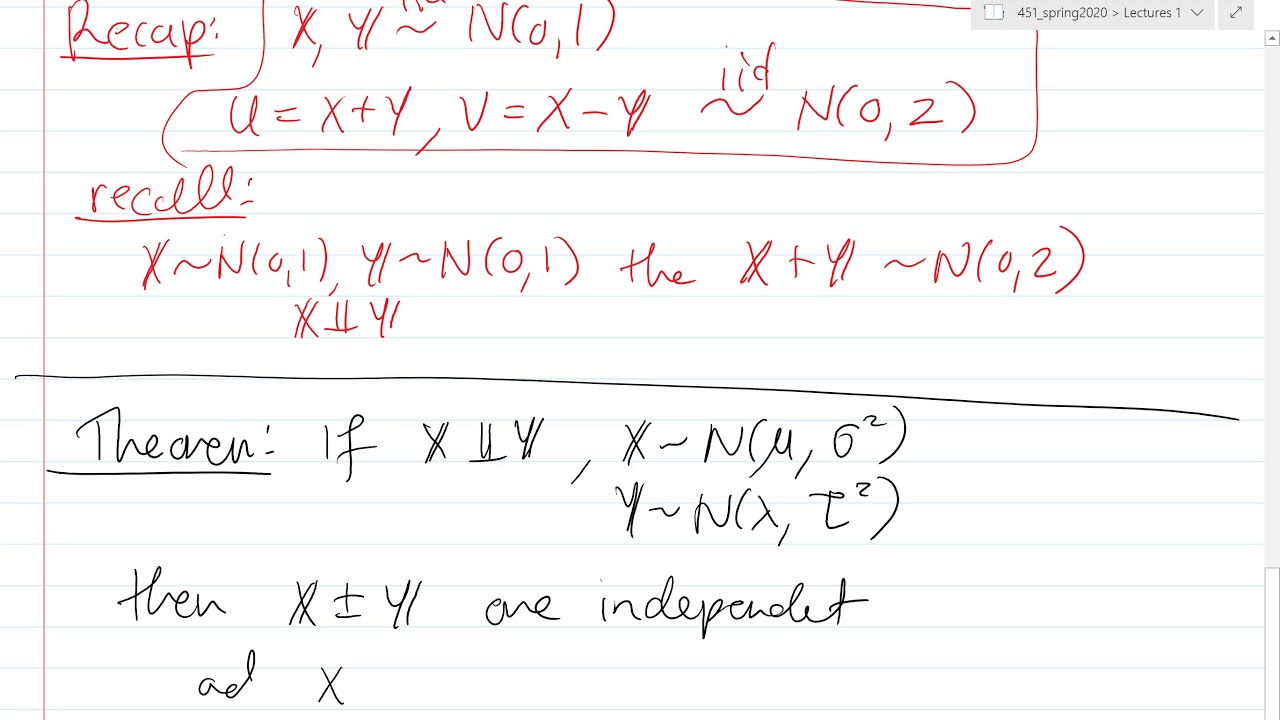 451_spring2020 > Lectures 1
Recap: X, Y ~ N(0,1)
iid
U = X+Y, V = X-Y ~ N(0,2)
recall:
X~N(0,1), Y~N(0,1) the X+Y ~N(0,2)
X⊥⊥Y
Theoren: If X⊥⊥Y, X~N(μ, σ²)
Y~N(λ, τ²)
then X±Y are independet
ad X